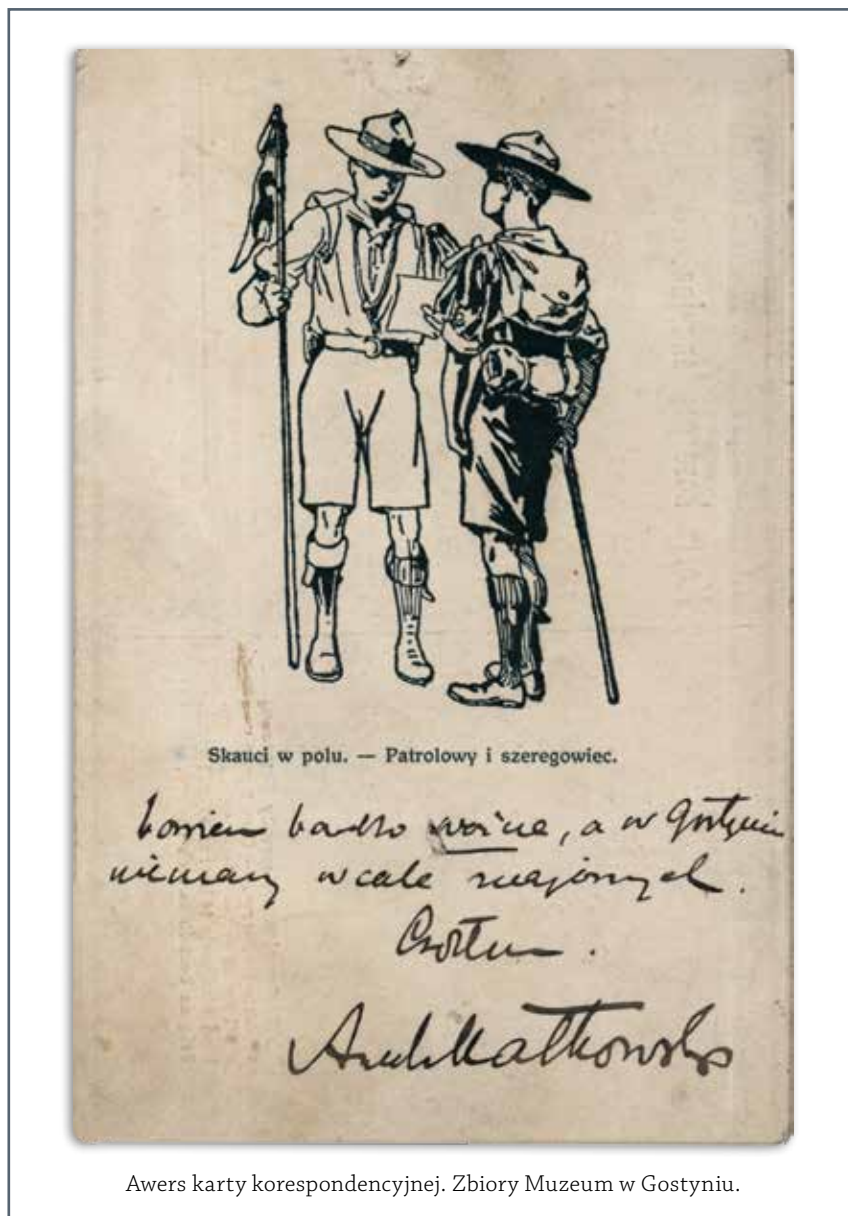 Skauci w polu. — Patrolowy i szeregowiec.
bardzo ważne, a w Gostyniu
niemamy wcale znajomych.
Czołem.
Małkowski
Awers karty korespondencyjnej. Zbiory Muzeum w Gostyniu.